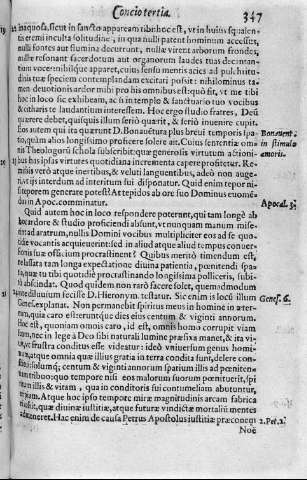 Concio tertia. 347
in inaquosa, sicut in sancto appaream tibi: hoc est, vt in huius squalen-
tis eremi inculta solitudine, in qua nulli patent hominum accessus,
nulli fontes aut flumina decurrunt, nullæ virent arborum frondes,
nullæ resonant sacerdotum aut organorum laudes tuas decantan-
tium voces: nihilque apparet, cuius sensu mentis acies ad pulchritu-
dinis tuæ speciem contemplandam excitari possit: nihilominus ta-
men deuotionis ardor mihi pro his omnibus est: quò fit, vt me tibi
hoc in loco sic exhibeam, ac si in templo & sanctuario tuo vocibus
& citharis te laudantium interessem. Hoc ergo studio fratres, Deũ
quærere debet, quisquis illum seriò quærit, & seriò inuenire cupit.
Eos autem qui ita quærunt D. Bonauētura plus breui temporis spa-
tio, quàm alios longissimo proficere solere ait. Cuius sententiæ om-
Theologorū schola subscribit: quæ generosis virtutum actioni-
bus has ipsas virtutes quotidiana incrementa capere profitetur. Re-
missis verò atque inertibus, & veluti languentibus, adeò non auge-
ri, vt ijs interdum ad interitum sui disponatur. Quid enim tepor ni-
si teporem generare potest? At tepidos ab ore suo Dominus euome-
in Apoc. comminatur.
Bonauent.
in stimulo
amoris.
Apocal. 3.
Quid autem hoc in loco respondere poterunt, qui tam longè ab
hoc ardore & studio proficiendi absunt, vt nunquam manum mise-
ad aratrum, nullis Domini vocibus multipliciter eos ad se quo-
tidie vocantis acquieuerint: sed in aliud atque aliud tempus conuer-
sionis suæ officium procrastinent? Quibus meritò timendum est,
ne lassata tam longa expectatione diuina patientia, pœnitendi spa-
tia, quæ tu tibi quotidie procrastinando longissima polliceris, subi-
abscindat. Quod quidem non rarò facere solet, quemadmodum
antediluuium fecisse D. Hieronym. testatur. Sic enim is locū illum
Genes. explanat. Non permanebit spiritus meus in homine in æter-
num, quia caro est: eruntque dies eius centum & viginti annorum.
Hoc est, quoniam omnis caro, id est, omnis homo corrupit viam
suam, nec in lege à Deo sibi naturali lumine præfixa manet, & ita vi-
frustra conditus esse videatur: ideò vniuersum genus homi-
num, atque omnia quæ illius gratia in terra condita sunt, delere de-
solum: centum & viginti annorum spatium illis ad pœniten-
tribuo: quo tempore nisi eos malorum suorum pœnituerit, ipsi
illis & viram, qua in conditoris sui contumeliam abutuntur,
eripiam. Atque hoc ipso tempore miræ magnitudinis arcam fabrica
iussit, quæ diuinæ iustitiæ, atque futuræ vindictæ mortalis mentes
admoneret. Hac enim de causa Petrus Apostolus iustitiæ præconem
Genes. 6.
2. Pet. 2.
Noë